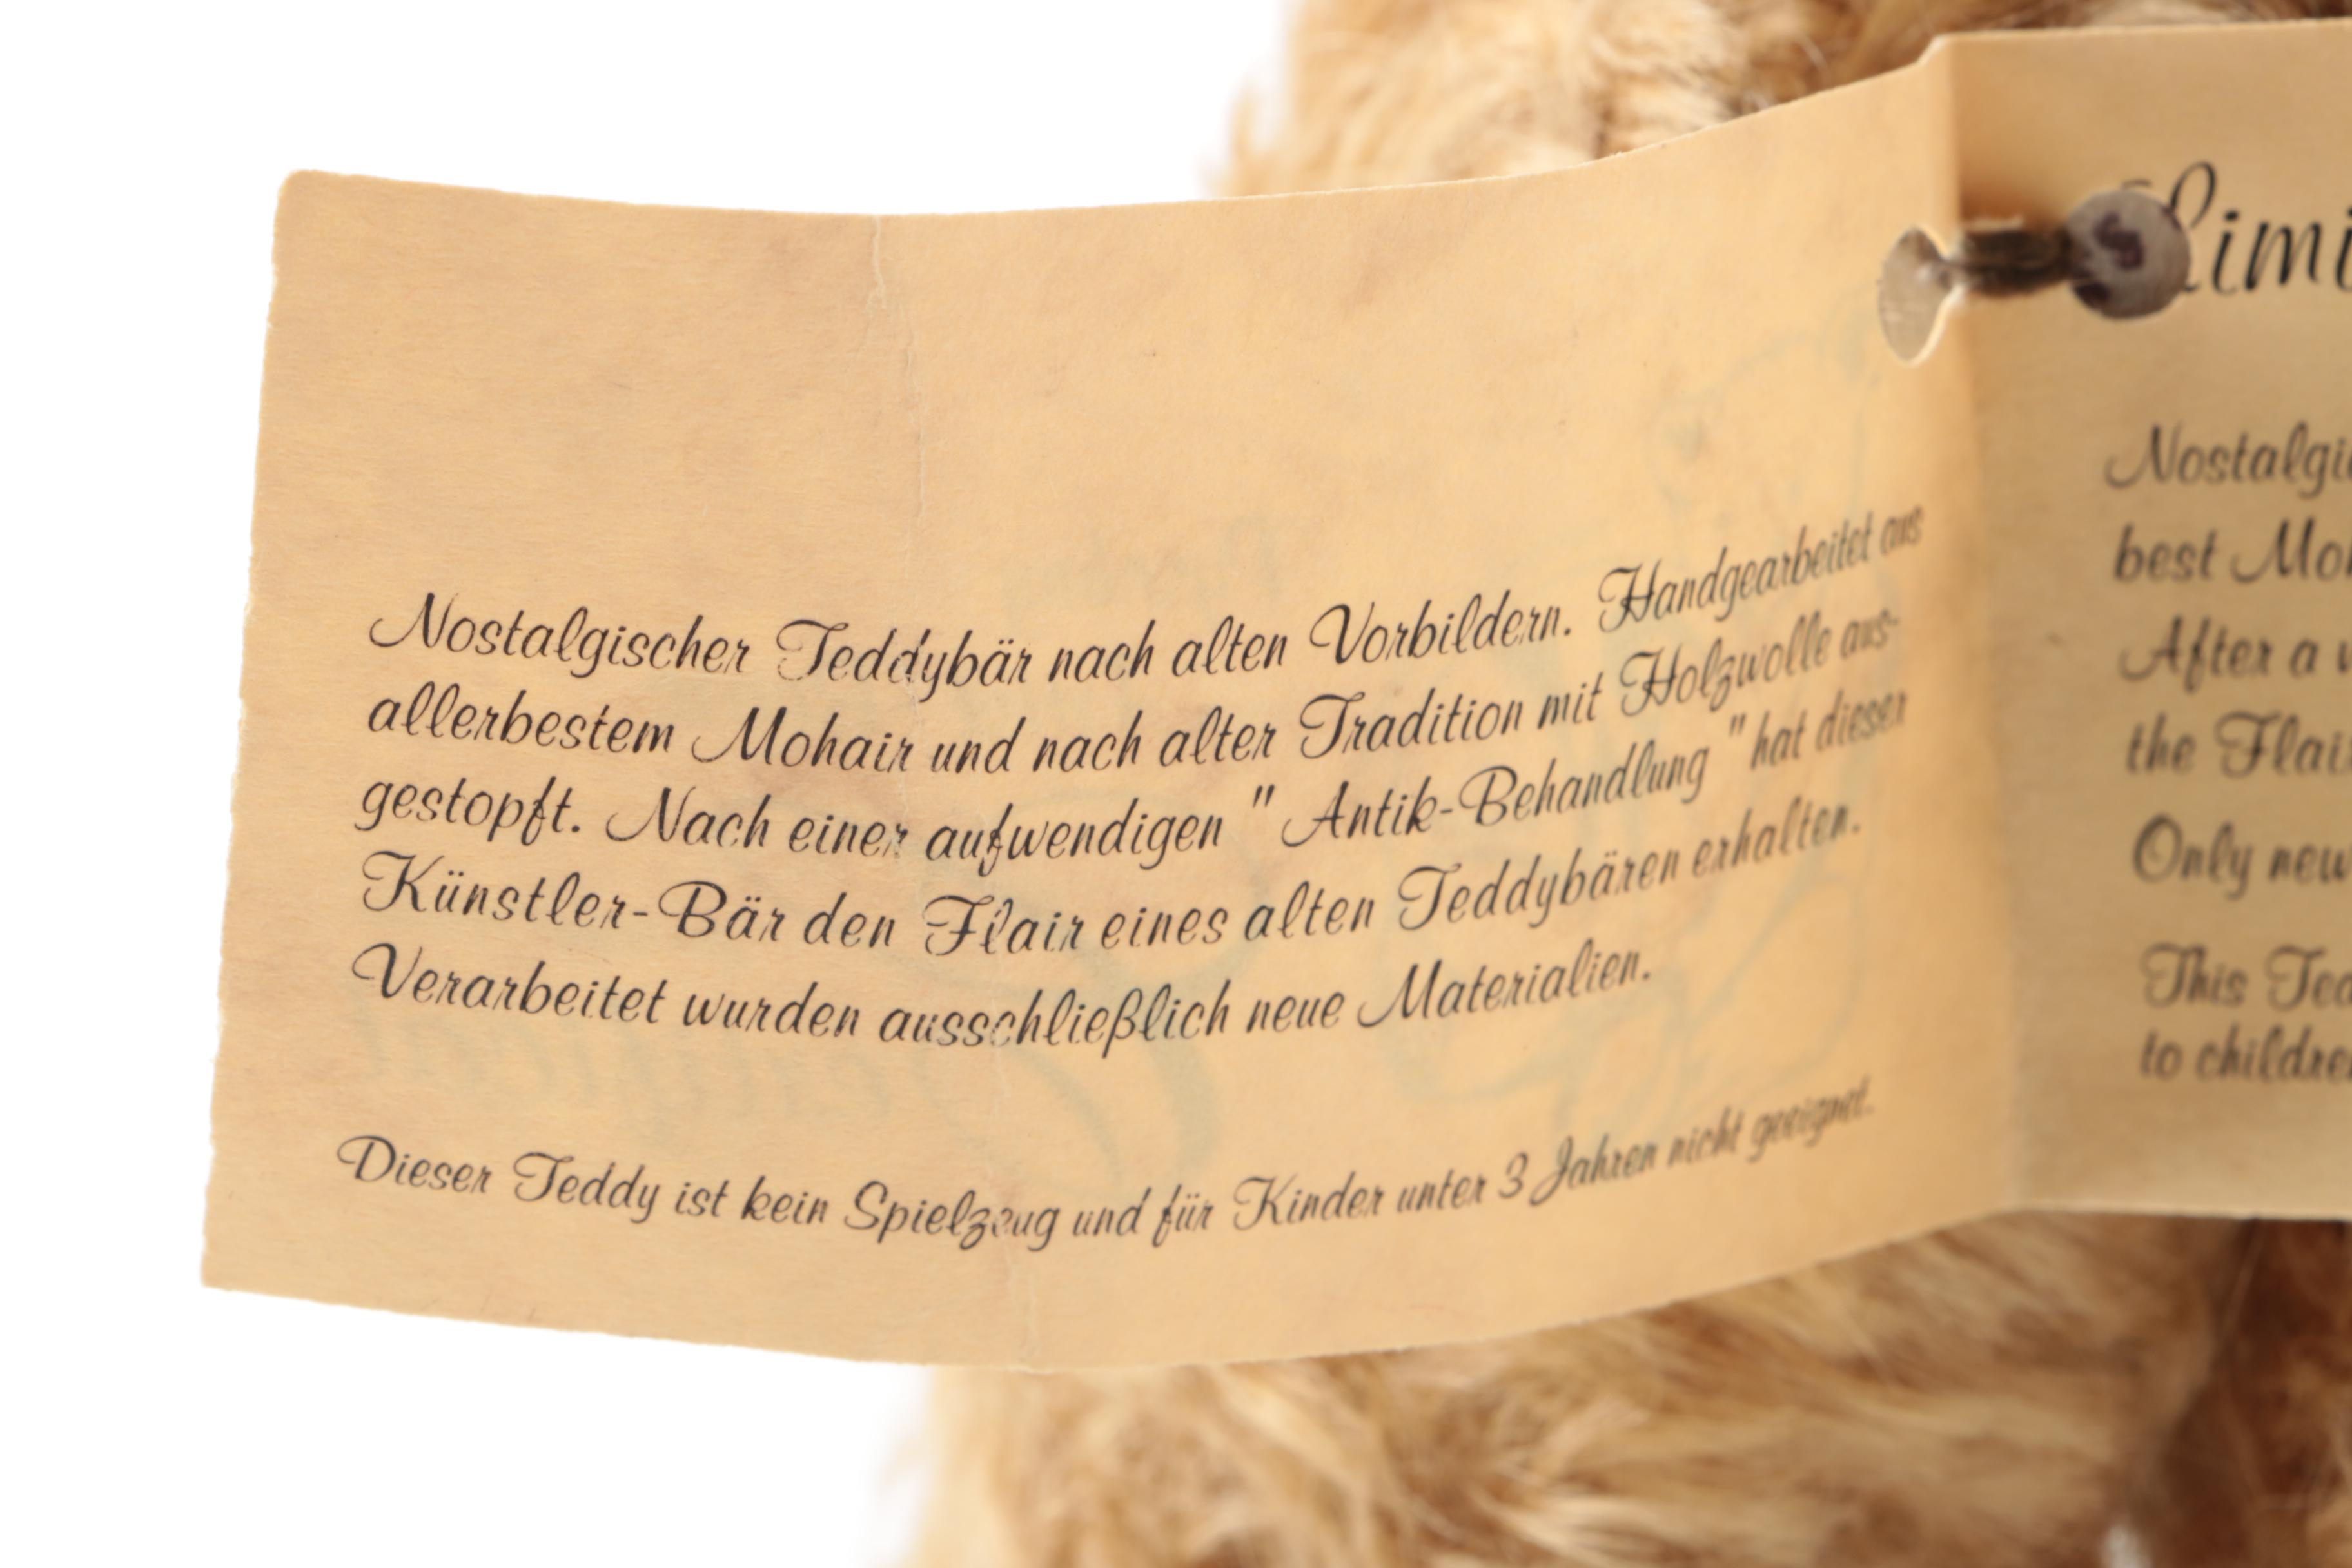 Nostalgischer Teddybär nach alten Vorbildern. Handgearbeitet aus
allerbestem Mohair und nach alter Tradition mit Holzwolle aus-
gestopft. Nach einer aufwendigen " Antik-Behandlung " hat dieser
Künstler-Bär den Flair eines alten Teddybären erhalten.
Verarbeitet wurden ausschließlich neue Materialien.
Dieser Teddy ist kein Spielzeug und für Kinder unter 3 Jahren nicht geeignet.
Limi
Nostalgi
best Moh
After a
the Flai
Only new
This Ted
to childre